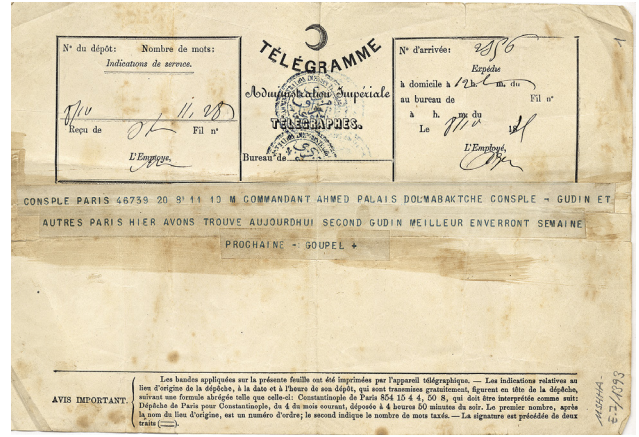 TÉLÉGRAMME
Administration Impériale
TÉLÉGRAPHES.
Bureau de
N° du dépôt: Nombre de mots:
Indications de service.
8/10 11.28
Reçu de Fil n°
L'Employé,
N° d'arrivée: 2856
Expédié
à domicile à 12 h. m. du
au bureau de Fil n°
à h. m. du
Le 18
L'Employé,
CONSPLE PARIS 46739 20 8/11 10 M COMMANDANT AHMED PALAIS DOLMABAKTCHE CONSPLE - GUDIN ET
AUTRES PARIS HIER AVONS TROUVE AUJOURDHUI SECOND GUDIN MEILLEUR ENVERRONT SEMAINE
PROCHAINE - GOUPEL +
AVIS IMPORTANT.
Les bandes appliquées sur la présente feuille ont été imprimées par l'appareil télégraphique. — Les indications relatives au
lieu d'origine de la dépêche, à la date et à l'heure de son dépôt, qui sont transmises gratuitement, figurent en tête de la dépêche,
suivant une formule abrégée telle que celle-ci: Constantinople de Paris 854 15 4 4, 50 S, qui doit être interprétée comme suit:
Dépêche de Paris pour Constantinople, du 4 du mois courant, déposée à 4 heures 50 minutes du soir. Le premier nombre, après
la nom du lieu d'origine, est un numéro d'ordre; le second le nombre de mots taxés. — La signature est précédée de deux
traits (═).
MSHHA-
E-7/1393